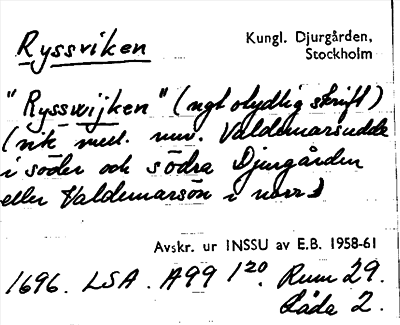 Ryssviken
Kungl. Djurgården,
Stockholm
"Rysswijken" (ngt otydlig skrift)
(vik med. nuv. Valdemarsudde
i söder och södra Djurgården
eller Valdemarsön i norr)
Avskr. ur INSSU av E.B. 1958-61
1696. LSA. A99 1 20. Rum 29.
Låda 2.